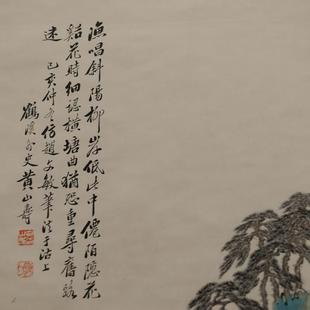 漁唱斜陽柳岸低此中僊陌隱花
谿花時細認橫塘曲猶恐重尋舊路
迷 己亥仲冬仿趙文敏筆法于沽上
鶴溪外史黃山壽